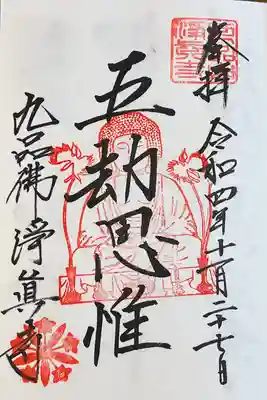 奉拝
令和四年十一月二十七日
五劫思惟
九品佛 淨真寺